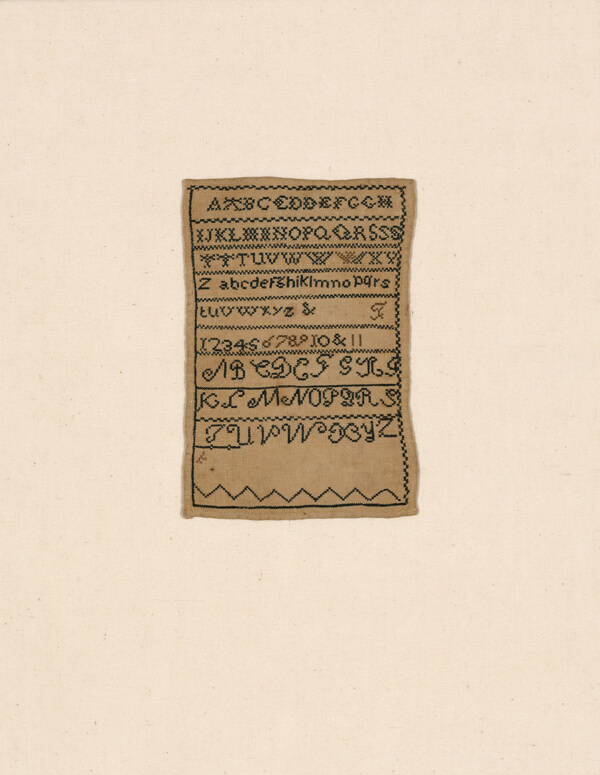 AABCCDDEFGGH
IJKLMMNOPQQRSSS
TTTUVWWWXY
Z abcdefghiklmnopqrs
tuvwxyz & T
12345678910&11
ABCDEFGHI
KLMNOPQRS
TUVWXYZ